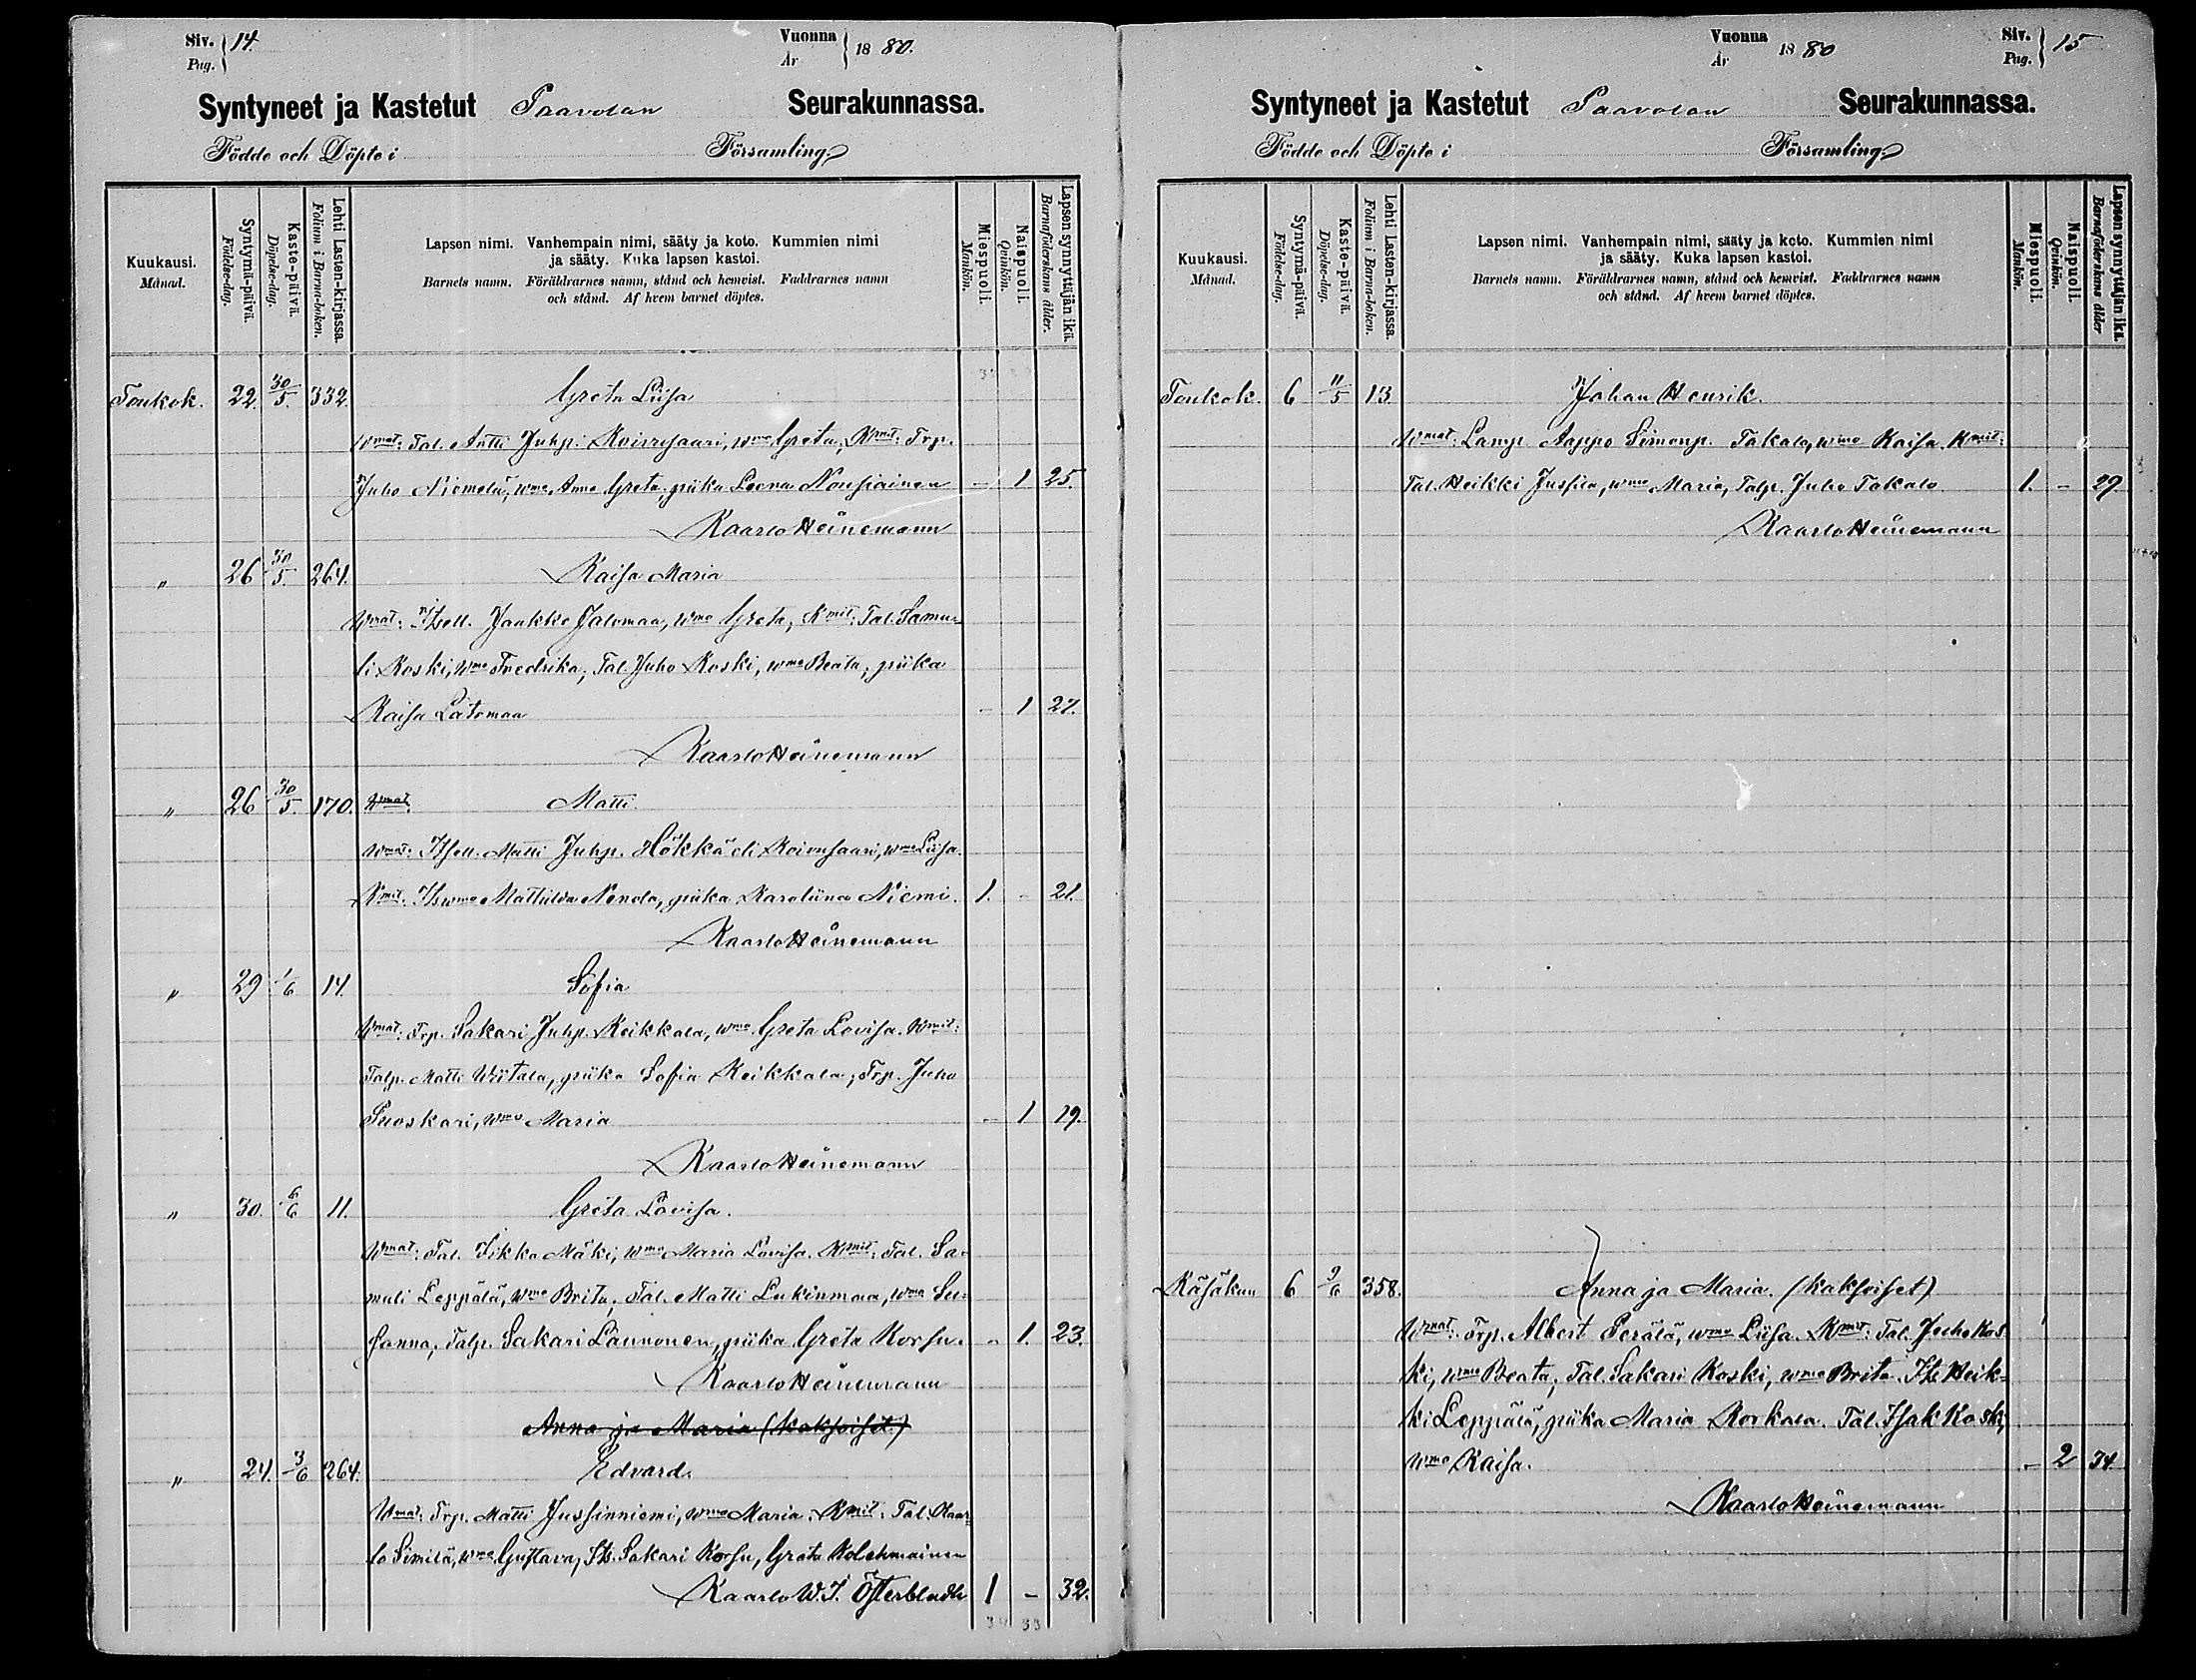 Siv. 14.
Pag.
Vuonna 1880.
År
Syntyneet ja Kastetut Paavolan Seurakunnassa.
Födde och Döpte i Församling
Kuukausi. Månad.
Syntymä-päivä. Födelse-dag.
Kaste-päivä. Döpelse-dag.
Lehti Lasten-kirjassa. Folium i Barna-boken.
Lapsen nimi. Vanhempain nimi, sääty ja koto. Kummien nimi
ja sääty. Kuka lapsen kastoi.
Barnets namn. Föräldrarnes namn, stånd och hemvist. Faddrarnes namn
och stånd. Af hvem barnet döptes.
Miespuoli. Mankön.
Naispuoli. Qvinkön.
Lapsen synnyttäjän ikä. Barnaföderskans ålder.
Toukok. 22. 30/5. 332. Greta Liisa
Wmat: Tal. Antti Juhp. Koivusaari, wmo Greta, Kmit: Trp.
Juho Niemelä, wmo Anna Greta, piika Leena Nousiainen - 1 25.
Kaarlo Heinemann
" 26 30/5. 264. Kaisa Maria
Wmat: Itsell. Jaakko Jalomaa, wmo Greta, Kmit: Tal. Samu-
li Koski, wmo Fredrika, Tal. Juho Koski, wmo Beata, piika
Kaisa Latomaa - 1 27.
Kaarlo Heinemann
" 26 30/5. 170. Wmat: Matti.
Wmat: Itsell. Matti Juhp. Hökkä eli Koivusaari, wmo Liisa.
Kmit: Itswmo Mathilda, piika Karoliina Niemi. 1. - 21.
Kaarlo Heinemann
" 29 1/6 14. Sofia
Wmat: Trp. Sakari Juhp. Keikkala, wmo Greta Lovisa. Kmit:
Talp. Matti Wiitala, piika Sofia Keikkala, Trp. Juho
Puoskari, wmo Maria - 1 19.
Kaarlo Heinemann
" 30. 6/6 11. Greta Lovisa.
Wmat: Tal. Iikka Mäki, wmo Maria Lovisa. Kmit: Tal. Sa-
muli Leppälä, wmo Brita, Tal. Matti Lukinmaa, wmo Su-
sanna, Talp. Sakari Launonen, piika Greta Korsu. - 1. 23.
Kaarlo Heinemann
Anna ja Maria (kaksoiset)
" 24. 3/6 264. Edvard.
Wmat: Trp. Matti Jussinniemi, wmo Maria. Kmit: Tal. Kaar-
lo Similä, wmo Gustava, Its. Sakari Korsu, Greta Kolehmainen
Kaarlo W.I. Österbladh 1 - 32.
Vuonna 1880
År
Siv. 15
Pag.
Syntyneet ja Kastetut Paavolan Seurakunnassa.
Födde och Döpte i Församling
Kuukausi. Månad.
Syntymä-päivä. Födelse-dag.
Kaste-päivä. Döpelse-dag.
Lehti Lasten-kirjassa. Folium i Barna-boken.
Lapsen nimi. Vanhempain nimi, sääty ja koto. Kummien nimi
ja sääty. Kuka lapsen kastoi.
Barnets namn. Föräldrarnes namn, stånd och hemvist. Faddrarnes namn
och stånd. Af hvem barnet döptes.
Miespuoli. Mankön.
Naispuoli. Qvinkön.
Lapsen synnyttäjän ikä. Barnaföderskans ålder
Toukok. 6 11/5 13. Johan Henrik.
Wmat: Lamp. Aappo Simonp. Takalo, wmo Kaisa. Kmit:
Tal. Heikki Jussila, wmo Maria, Talp. Juho Takalo. 1. - 29.
Kaarlo Heinemann
Käsäkuu 6 9/6 358. Anna ja Maria. (kaksoiset)
Wmat: Trp. Albert Perälä, wmo Liisa. Kmit: Tal. Juho Kos-
ki, wmo Beata, Tal. Sakari Koski, wmo Brita. Its. Heik-
ki Leppälä, piika Maria Korkala. Tal. Isak Koski,
wmo Kaisa. - 2 34.
Kaarlo Heinemann